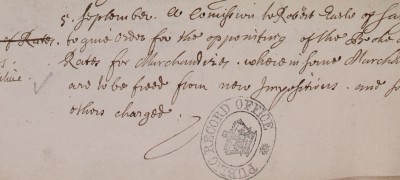 5. September. A Comission to Robert Earle of Sa
of Rates. to giue order for the appointing of the Booke o
Rates for Marchandizes. wherein some Marchan
are to be freed from new Impositions. and so
others charged.
PUBLIC RECORD OFFICE